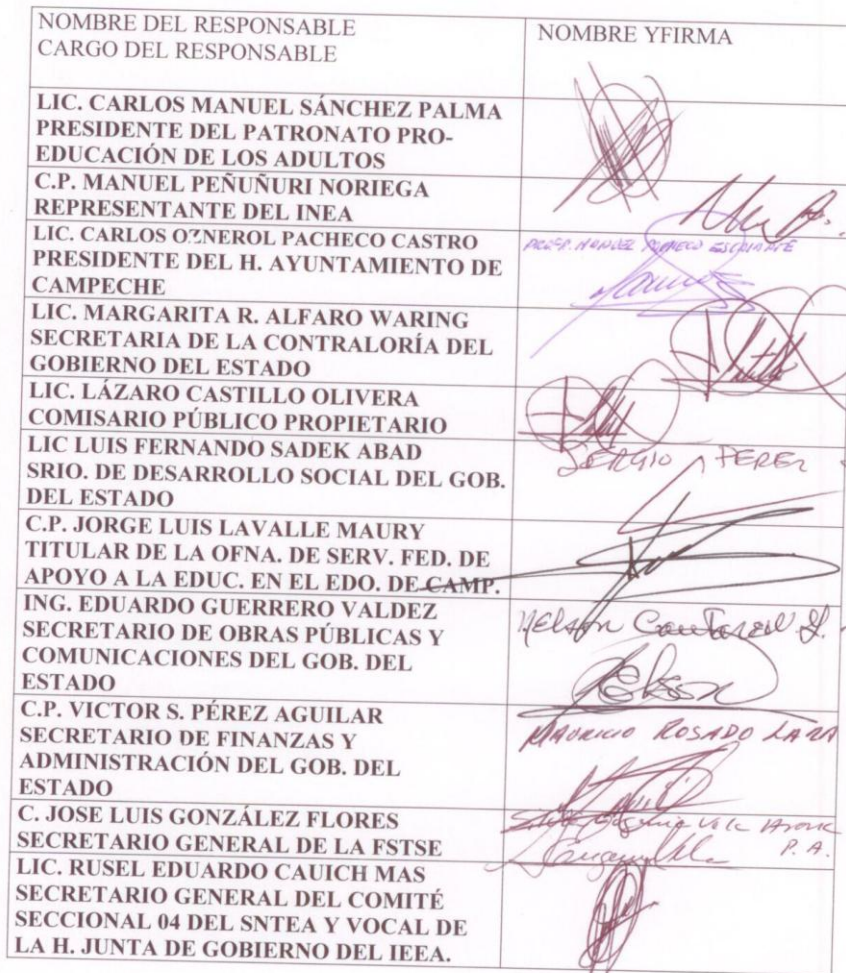 NOMBRE DEL RESPONSABLE
CARGO DEL RESPONSABLE
NOMBRE YFIRMA
LIC. CARLOS MANUEL SÁNCHEZ PALMA
PRESIDENTE DEL PATRONATO PRO-
EDUCACIÓN DE LOS ADULTOS
C.P. MANUEL PEÑUÑURI NORIEGA
REPRESENTANTE DEL INEA
LIC. CARLOS OZNEROL PACHECO CASTRO
PRESIDENTE DEL H. AYUNTAMIENTO DE
CAMPECHE
PROFR. MANUEL PACHECO
LIC. MARGARITA R. ALFARO WARING
SECRETARIA DE LA CONTRALORÍA DEL
GOBIERNO DEL ESTADO
LIC. LÁZARO CASTILLO OLIVERA
COMISARIO PÚBLICO PROPIETARIO
LIC LUIS FERNANDO SADEK ABAD
SRIO. DE DESARROLLO SOCIAL DEL GOB.
DEL ESTADO
SERGIO PEREZ
C.P. JORGE LUIS LAVALLE MAURY
TITULAR DE LA OFNA. DE SERV. FED. DE
APOYO A LA EDUC. EN EL EDO. DE CAMP.
ING. EDUARDO GUERRERO VALDEZ
SECRETARIO DE OBRAS PÚBLICAS Y
COMUNICACIONES DEL GOB. DEL
ESTADO
Nelson
C.P. VICTOR S. PÉREZ AGUILAR
SECRETARIO DE FINANZAS Y
ADMINISTRACIÓN DEL GOB. DEL
ESTADO
MAURICIO ROSADO LARA
C. JOSE LUIS GONZÁLEZ FLORES
SECRETARIO GENERAL DE LA FSTSE
P. A.
LIC. RUSEL EDUARDO CAUICH MAS
SECRETARIO GENERAL DEL COMITÉ
SECCIONAL 04 DEL SNTEA Y VOCAL DE
LA H. JUNTA DE GOBIERNO DEL IEEA.